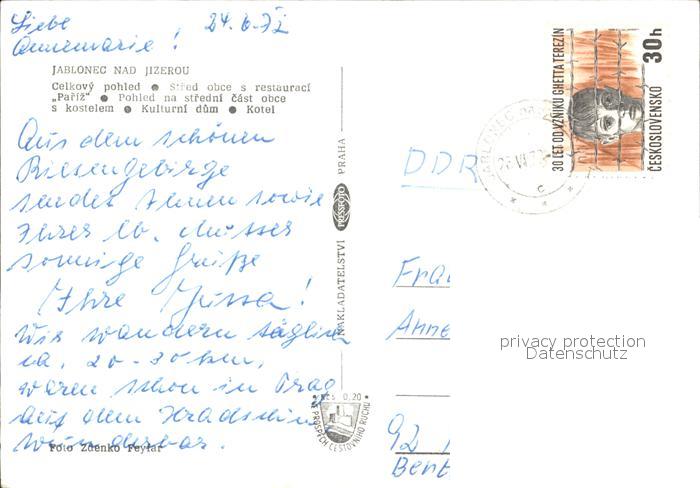 Liebe 24.6.72
Annemarie!
JABLONEC NAD JIZEROU
Celkový pohled ● Střed obce s restaurací
„Paříž" ● Pohled na střední část obce
s kostelem ● Kulturní dům ● Kotel
Aus dem schönen
Riesengebirge
sendet Ihnen sowie
Ihrer lb. Mutter
sonnige Grüße
Ihre
Wir wandern täglich
ca. 20-30 km,
waren schon in Prag
auf dem Hradschin
wunderbar.
Foto Zdenko Feyfar
NAKLADATELSTVÍ PRESSFOTO PRAHA
Kčs 0,20
VE PROSPĚCH CESTOVNÍHO RUCHU
30 LET OD VZNIKU GHETTA TEREZÍN
ČESKOSLOVENSKO
30h
JABLONEC
26.VI.72
C
DDR
Frau
Anne
92
privacy protection
Datenschutz